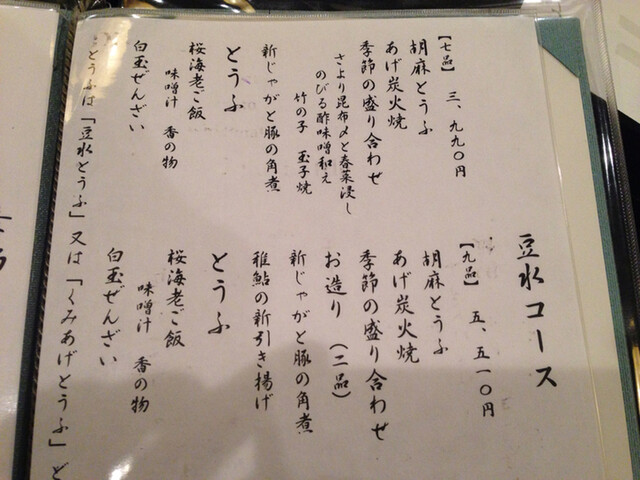 豆水コース
【七品】 三、九九〇円
胡麻とうふ
あげ炭火焼
季節の盛り合わせ
さより昆布〆と春菜浸し
のびる酢味噌和え
竹の子 玉子焼
新じゃがと豚の角煮
とうふ
桜海老ご飯
味噌汁 香の物
白玉ぜんざい
【九品】 五、五一〇円
胡麻とうふ
あげ炭火焼
季節の盛り合わせ
お造り(二品)
新じゃがと豚の角煮
稚鮎の新引き揚げ
とうふ
桜海老ご飯
味噌汁 香の物
白玉ぜんざい
とうふは「豆水とうふ」又は「くみあげとうふ」ど